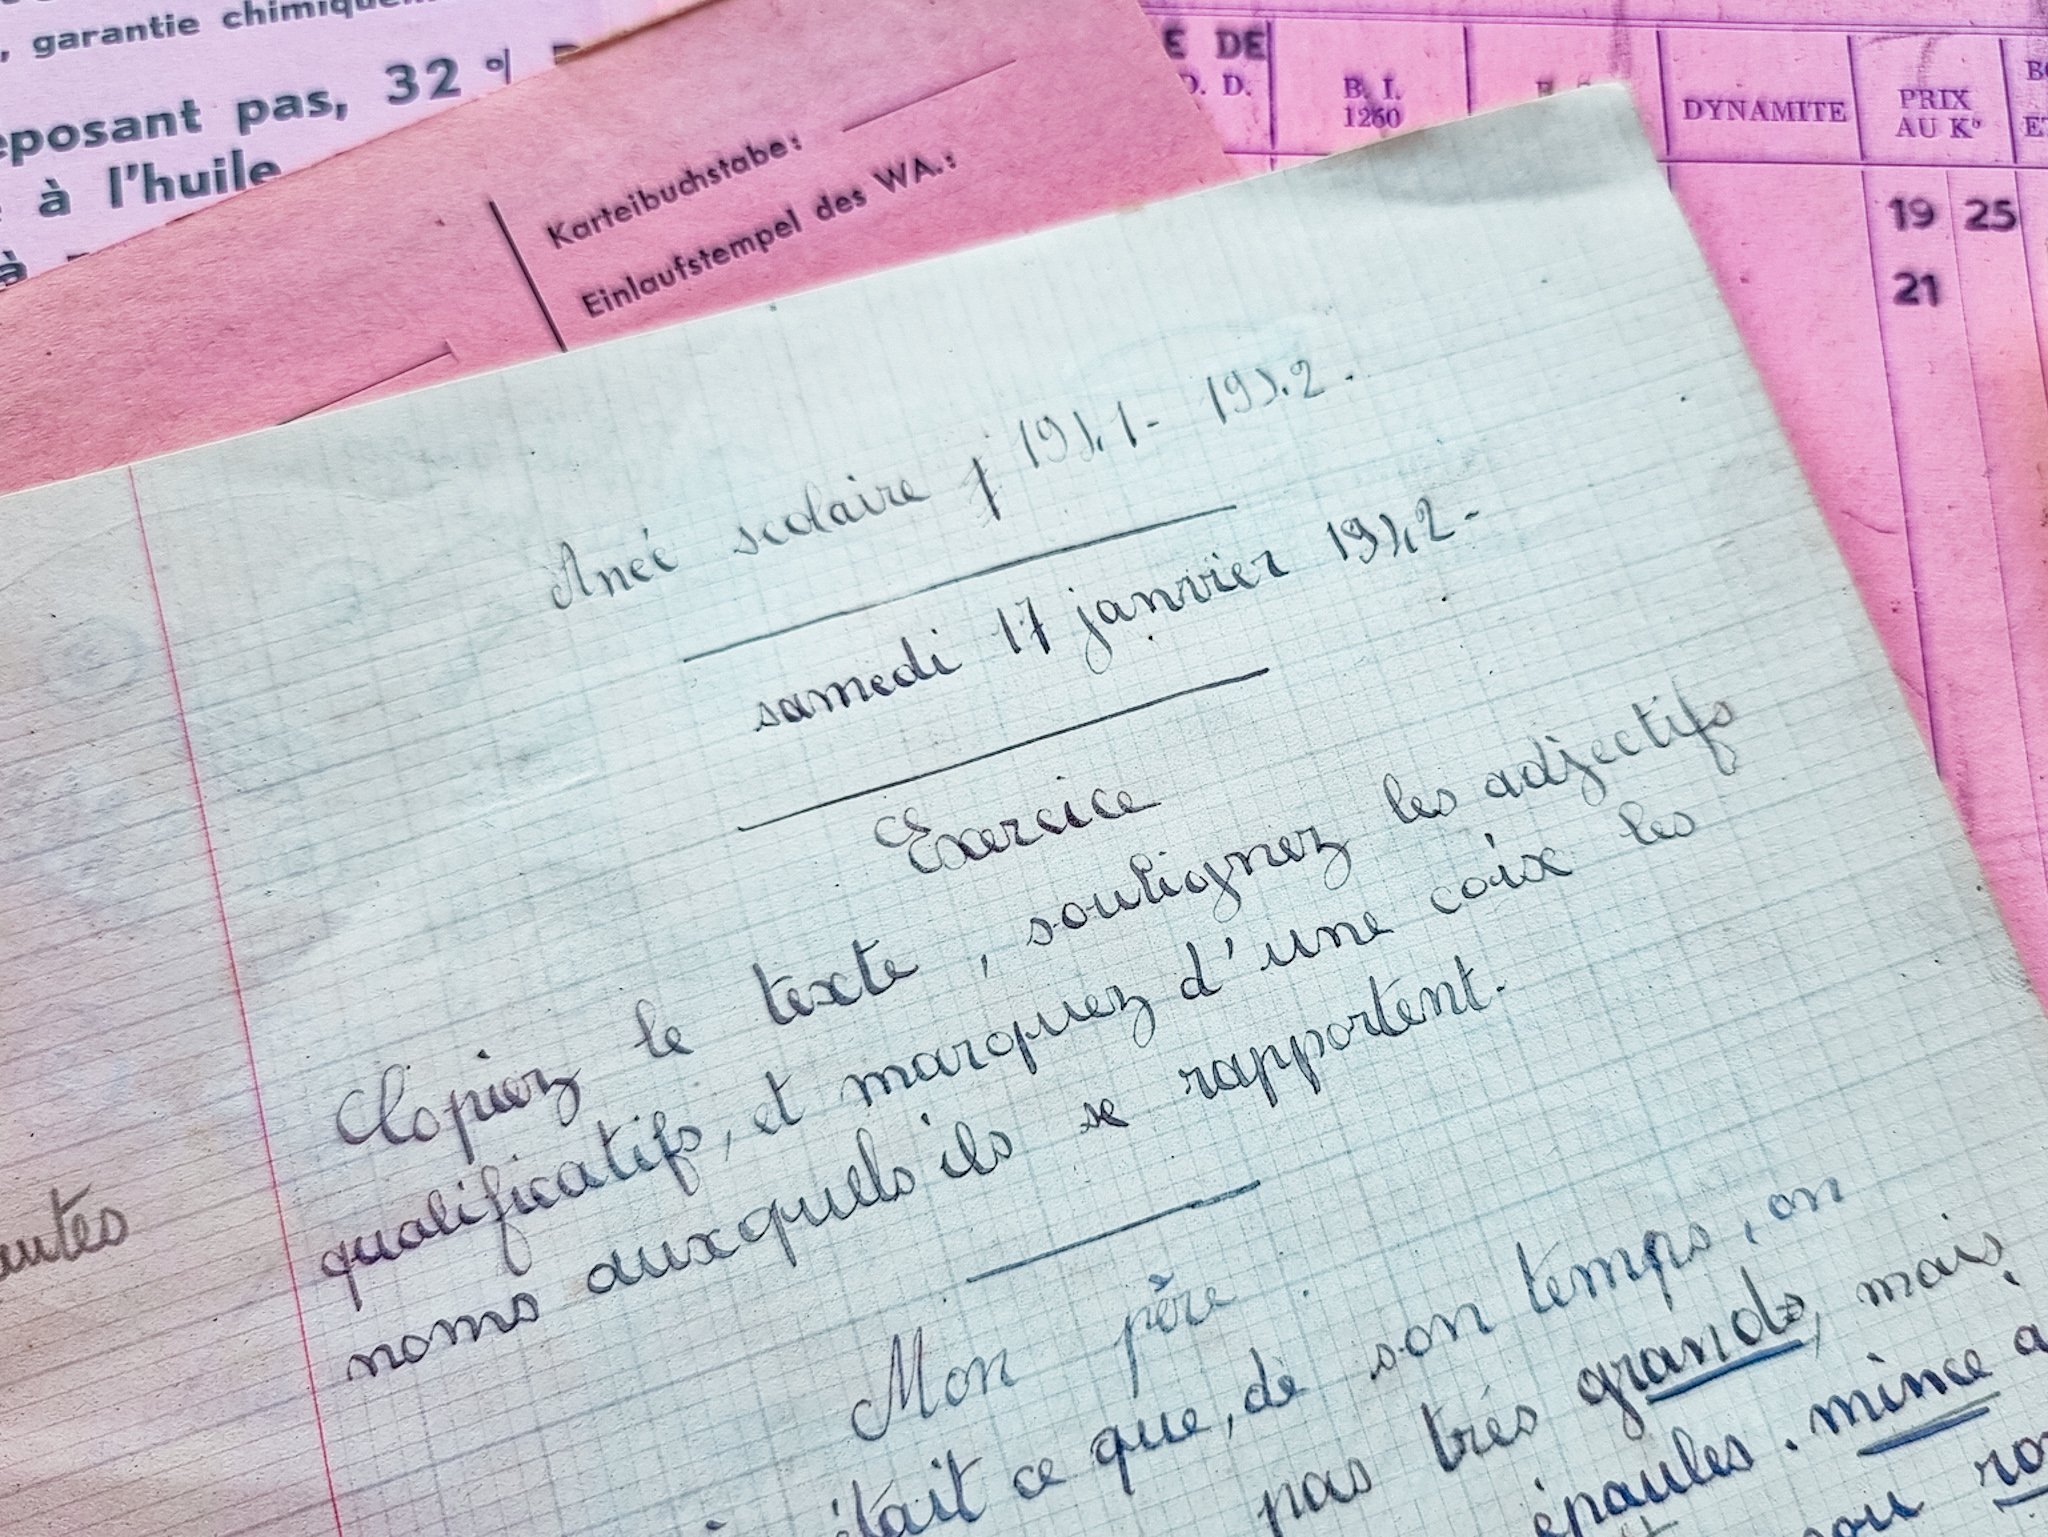 , garantie
posant pas, 32 %
à l'huile
à
Karteibuchstabe:
Einlaufstempel des WA.:
E DE
D. D.
B. I.
1260
DYNAMITE
PRIX
AU Kº
19 25
21
Anéé scolaire 1941-1942.
samedi 17 janvier 1942-
Exercice
Copiez le texte, soulignez les adjectifs
qualificatifs, et marquez d'une coix les
noms auxquels ils se rapportent.
Mon père.
était ce que, de son temps, on
pas très grands, mais
épaules. mince